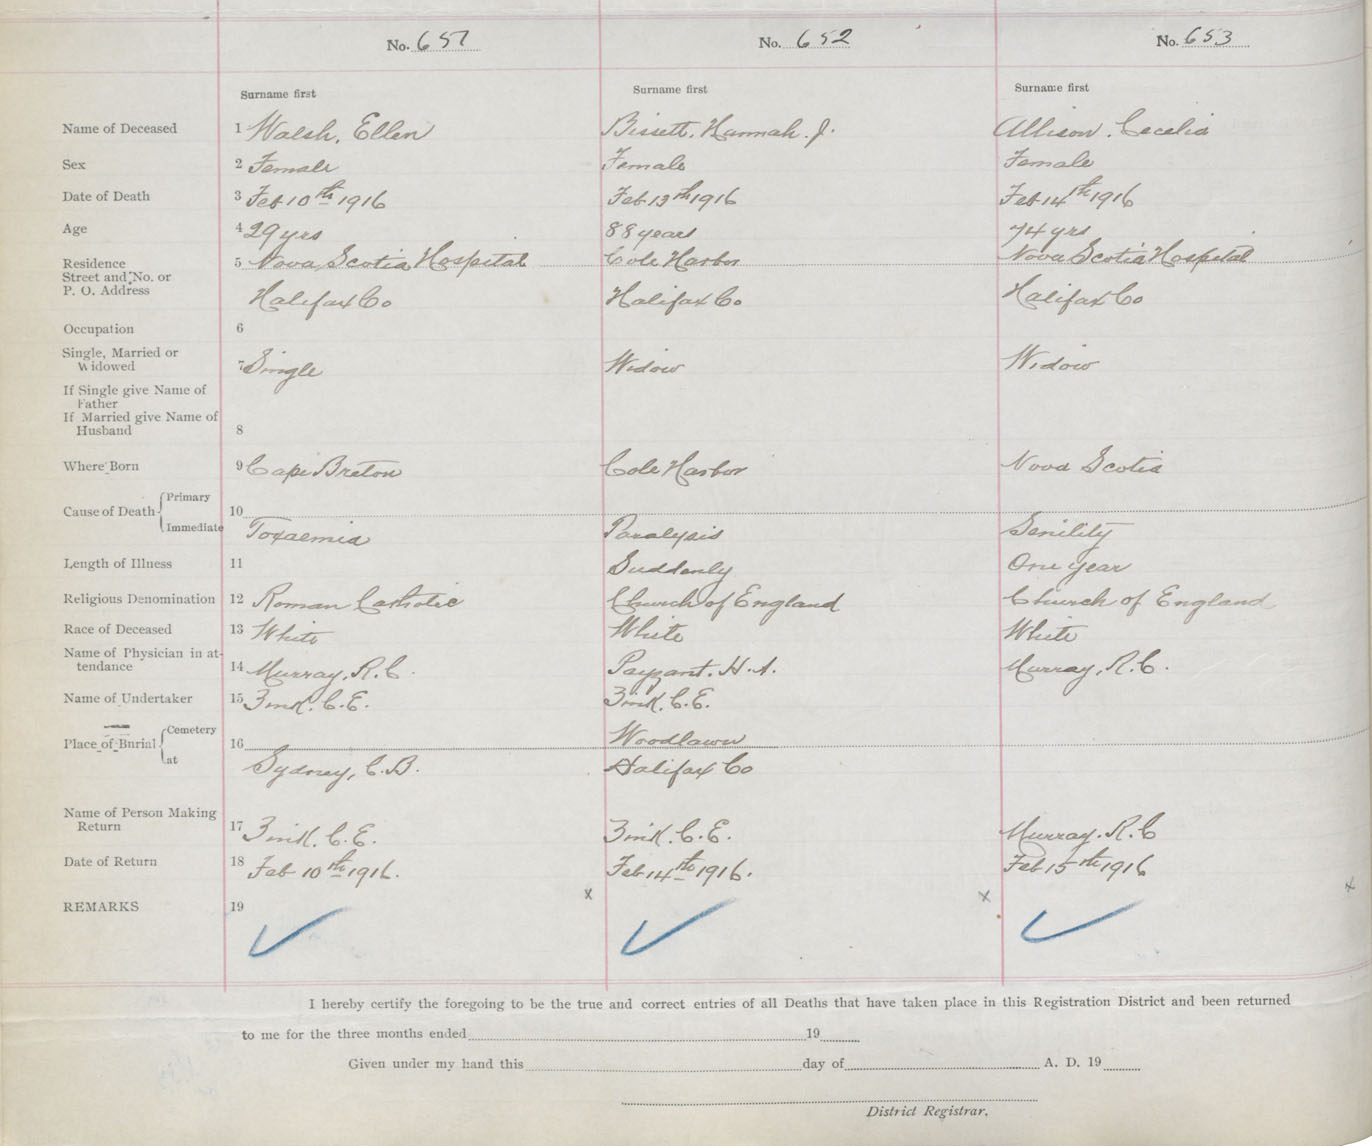 No. 651 No. 652 No. 653
Surname first Surname first Surname first
Name of Deceased 1 Walsh, Ellen Bissett, Hannah. J. Allison, Cecelia
Sex 2 Female Female Female
Date of Death 3 Feb 10th 1916 Feb 13th 1916 Feb 14th 1916
Age 4 29 yrs 88 years 74 yrs
Residence 5 Nova Scotia Hospital Cole Harbor Nova Scotia Hospital
Street and No. or
P. O. Address Halifax Co Halifax Co Halifax Co
Occupation 6
Single, Married or
Widowed 7 Single Widow Widow
If Single give Name of
Father
If Married give Name of
Husband 8
Where Born 9 Cape Breton Cole Harbor Nova Scotia
Cause of Death Primary 10
Immediate Toxaemia Paralysis Senility
Length of Illness 11 Suddenly One year
Religious Denomination 12 Roman Catholic Church of England Church of England
Race of Deceased 13 White White White
Name of Physician in at-
tendance 14 Murray, R. C. Payzant. H. A. Murray, R. C.
Name of Undertaker 15 Zink. C. E. Zink. C. E.
Place of Burial Cemetery 16 Woodlawn
at Sydney, C. B. Halifax Co
Name of Person Making
Return 17 Zink. C. E. Zink. C. E. Murray. R. C
Date of Return 18 Feb 10th 1916. Feb 14th 1916. Feb 15th 1916
x x x
REMARKS 19
I hereby certify the foregoing to be the true and correct entries of all Deaths that have taken place in this Registration District and been returned
to me for the three months ended 19
Given under my hand this day of A. D. 19
District Registrar.